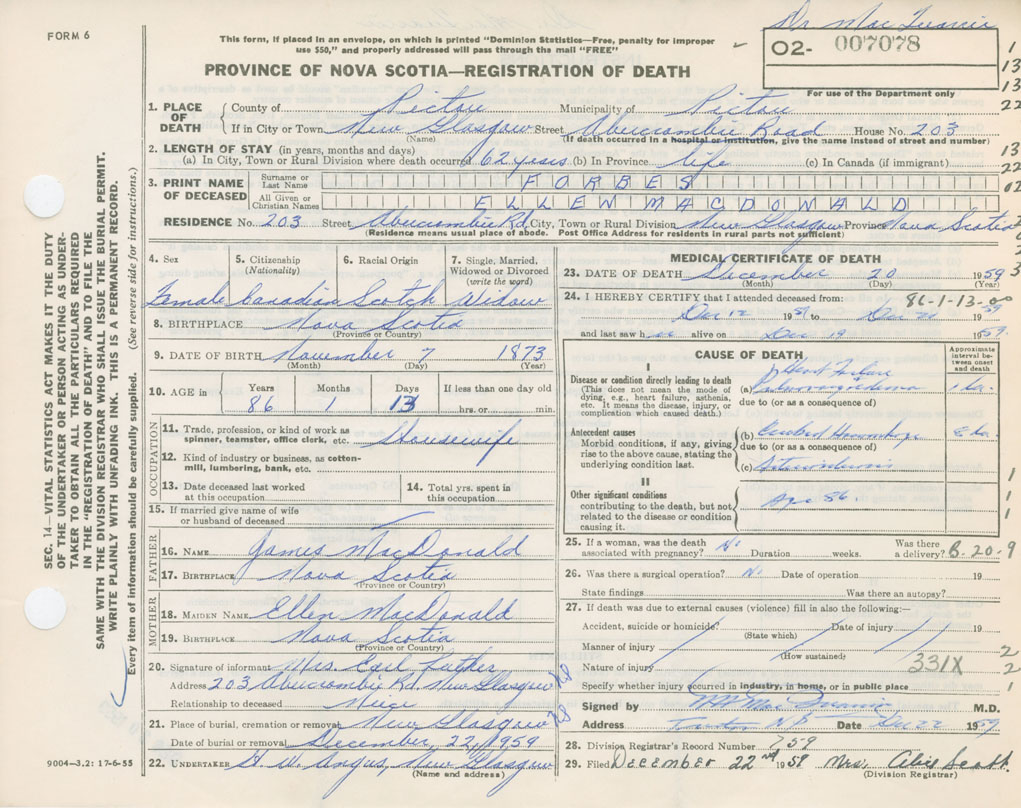 Dr. Mac
FORM 6
This form, if placed in an envelope, on which is printed "Dominion Statistics—Free, penalty for improper
use $50," and properly addressed will pass through the mail "FREE"
O2- 007078
For use of the Department only
PROVINCE OF NOVA SCOTIA—REGISTRATION OF DEATH
1. PLACE OF DEATH
County of Pictou Municipality of Pictou
If in City or Town New Glasgow Street Abercrombie Road House No. 203
(Name) (If death occurred in a hospital or institution, give the name instead of street and number)
2. LENGTH OF STAY (in years, months and days)
(a) In City, Town or Rural Division where death occurred 62 years (b) In Province life (c) In Canada (if immigrant)
3. PRINT NAME OF DECEASED
Surname or Last Name FORBES
All Given or Christian Names ELLEN MACDONALD
RESIDENCE No. 203 Street Abercrombie Rd. City, Town or Rural Division New Glasgow Province Nova Scotia
(Residence means usual place of abode. Post Office Address for residents in rural parts not sufficient)
4. Sex 5. Citizenship (Nationality) 6. Racial Origin 7. Single, Married, Widowed or Divorced (write the word)
Female Canadian Scotch Widow
8. BIRTHPLACE Nova Scotia
(Province or Country)
9. DATE OF BIRTH November 7 1873
(Month) (Day) (Year)
10. AGE in Years Months Days If less than one day old
86 1 13 hrs. or min.
OCCUPATION
11. Trade, profession, or kind of work as spinner, teamster, office clerk, etc. Housewife
12. Kind of industry or business, as cotton-mill, lumbering, bank, etc.
13. Date deceased last worked at this occupation
14. Total yrs. spent in this occupation
15. If married give name of wife or husband of deceased
FATHER
16. NAME James MacDonald
17. BIRTHPLACE Nova Scotia
(Province or Country)
MOTHER
18. MAIDEN NAME Ellen MacDonald
19. BIRTHPLACE Nova Scotia
(Province or Country)
20. Signature of informant Mrs. Earl
Address 203 Abercrombie Rd. New Glasgow
Relationship to deceased Niece
21. Place of burial, cremation or removal New Glasgow
Date of burial or removal December 22, 1959
22. UNDERTAKER H. W. Angus, New Glasgow
(Name and address)
9004—3.2: 17-6-55
MEDICAL CERTIFICATE OF DEATH
23. DATE OF DEATH December 20 1959
(Month) (Day) (Year)
24. I HEREBY CERTIFY that I attended deceased from:
86-1-13-00
Dec 12 19 to Dec 19 59
and last saw h alive on Dec 19 19 59
CAUSE OF DEATH
Approximate interval between onset and death
I
Disease or condition directly leading to death
(This does not mean the mode of dying, e.g., heart failure, asthenia, etc. It means the disease, injury, or complication which caused death.)
Heart Failure
(a)
due to (or as a consequence of)
Antecedent causes
Morbid conditions, if any, giving rise to the above cause, stating the underlying condition last.
(b) Cerebral Hemorrhage
due to (or as a consequence of)
(c)
II
Other significant conditions
contributing to the death, but not related to the disease or condition causing it.
Age 86.
25. If a woman, was the death associated with pregnancy? No Duration weeks. Was there a delivery? B. 20-9
26. Was there a surgical operation? No Date of operation 19
State findings Was there an autopsy?
27. If death was due to external causes (violence) fill in also the following:—
Accident, suicide or homicide? Date of injury 19
(State which)
Manner of injury
(How sustained)
Nature of injury 331X
Specify whether injury occurred in industry, in home, or in public place
Signed by M.D.
Address Date Dec 22 1959
28. Division Registrar's Record Number 759
29. Filed December 22nd 19 59 Mrs. Scott
(Division Registrar)
SEC. 14—VITAL STATISTICS ACT MAKES IT THE DUTY
OF THE UNDERTAKER OR PERSON ACTING AS UNDER-
TAKER TO OBTAIN ALL THE PARTICULARS REQUIRED
IN THE "REGISTRATION OF DEATH" AND TO FILE THE
SAME WITH THE DIVISION REGISTRAR WHO SHALL ISSUE THE BURIAL PERMIT.
WRITE PLAINLY WITH UNFADING INK. THIS IS A PERMANENT RECORD.
Every item of information should be carefully supplied. (See reverse side for instructions.)
1
13
13
22
13
22
02
1
1
1
2
2
1